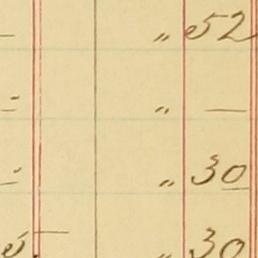 — „ 52
„ „ —
„ „ 30
5. — „ 30